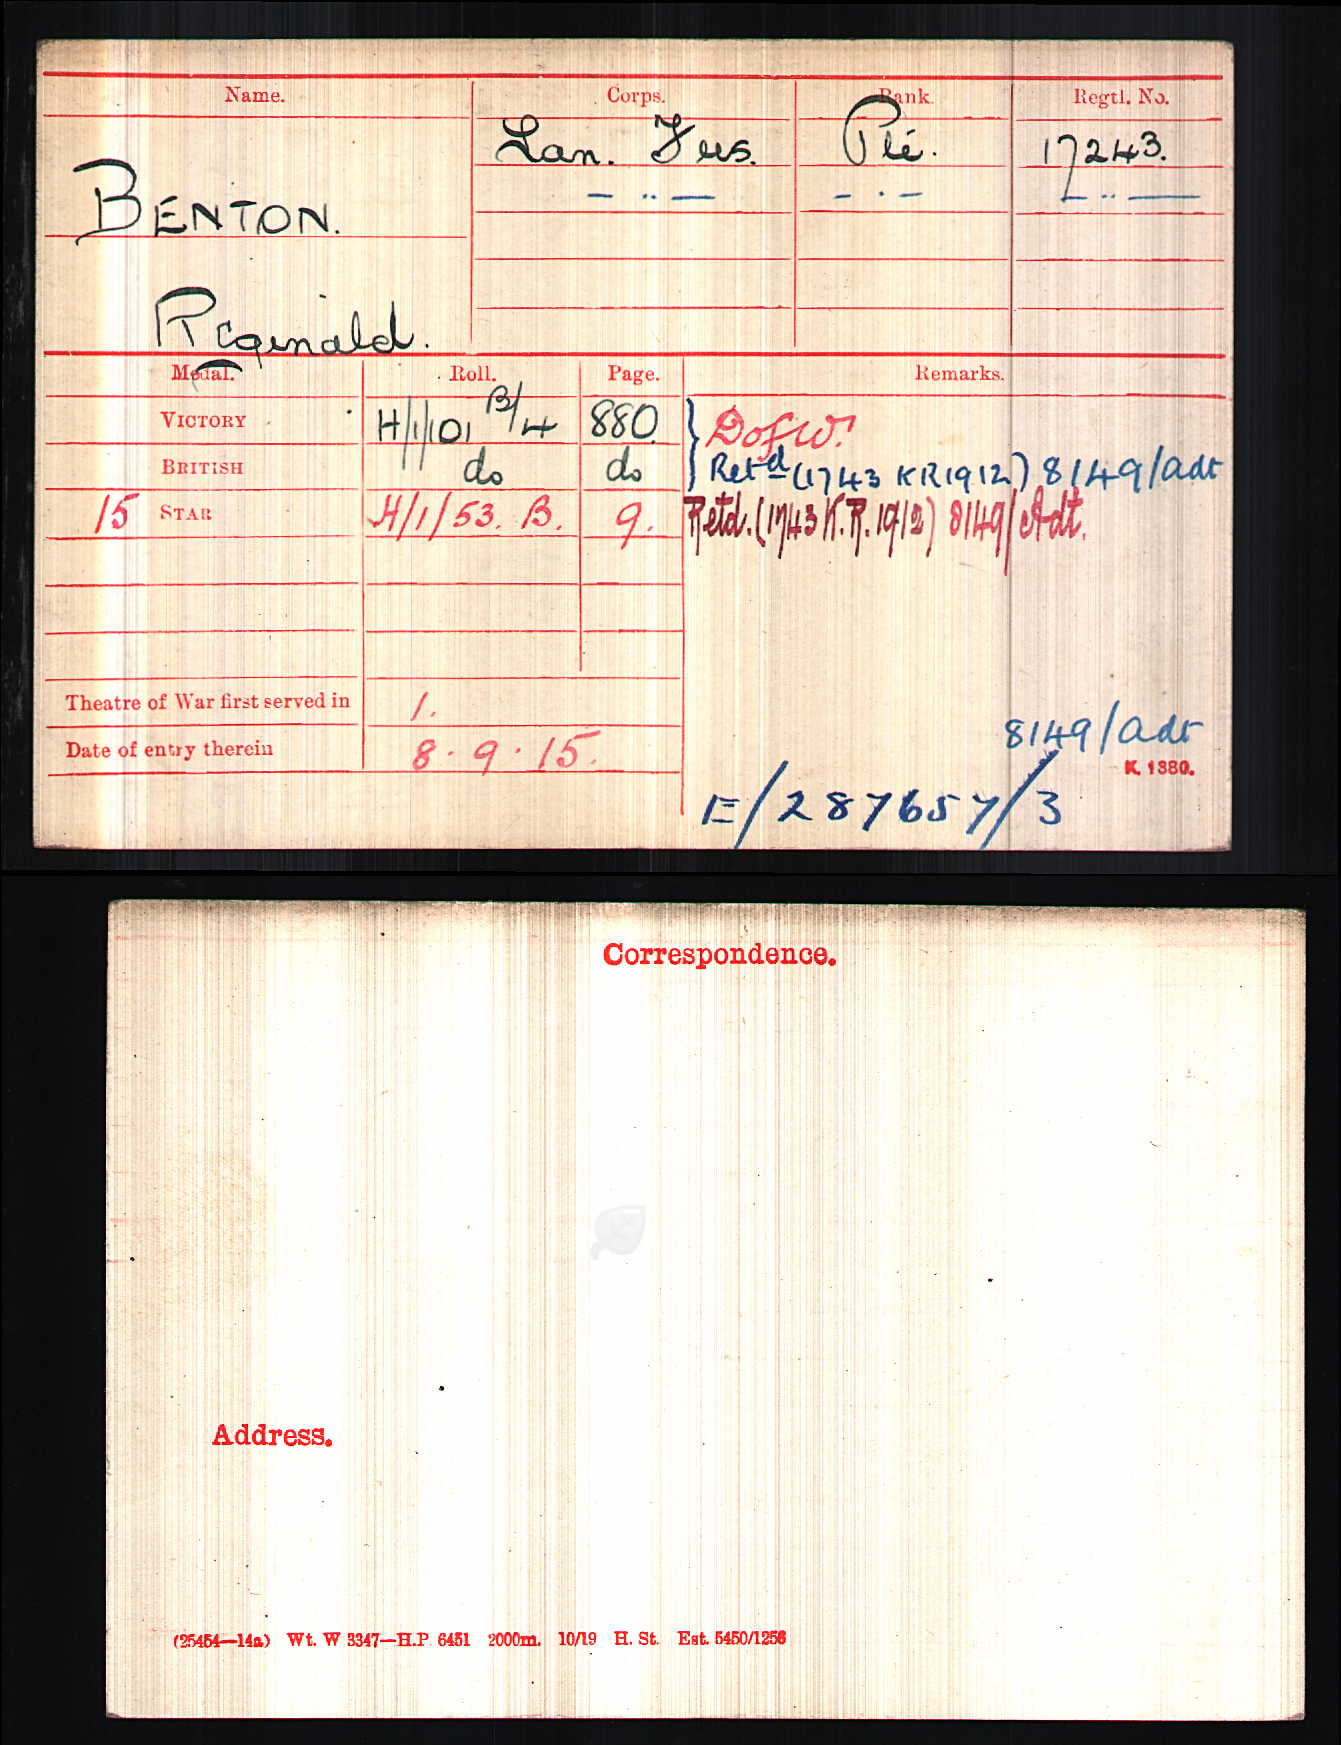 Name. Corps. Rank. Regtl. No.
BENTON. Lan. Fus. Pte. 17243.
— .. — — . — — .. —
Reginald.
Medal. Roll. Page. Remarks.
VICTORY H/1/101 B/4 880 } D of W.
BRITISH do do Retd (1743 KR 1912) 8149/Adt
15 STAR H/1/53. B. 9. Retd. (1743 K.R. 1912) 8149/Adt.
Theatre of War first served in 1.
8149/Adt
Date of entry therein 8.9.15.
K. 1380.
E/287657/3
Correspondence.
Address.
(25454—14a) Wt. W 3347—H.P. 6451 2000m. 10/19 H. St. Est. 5450/1256